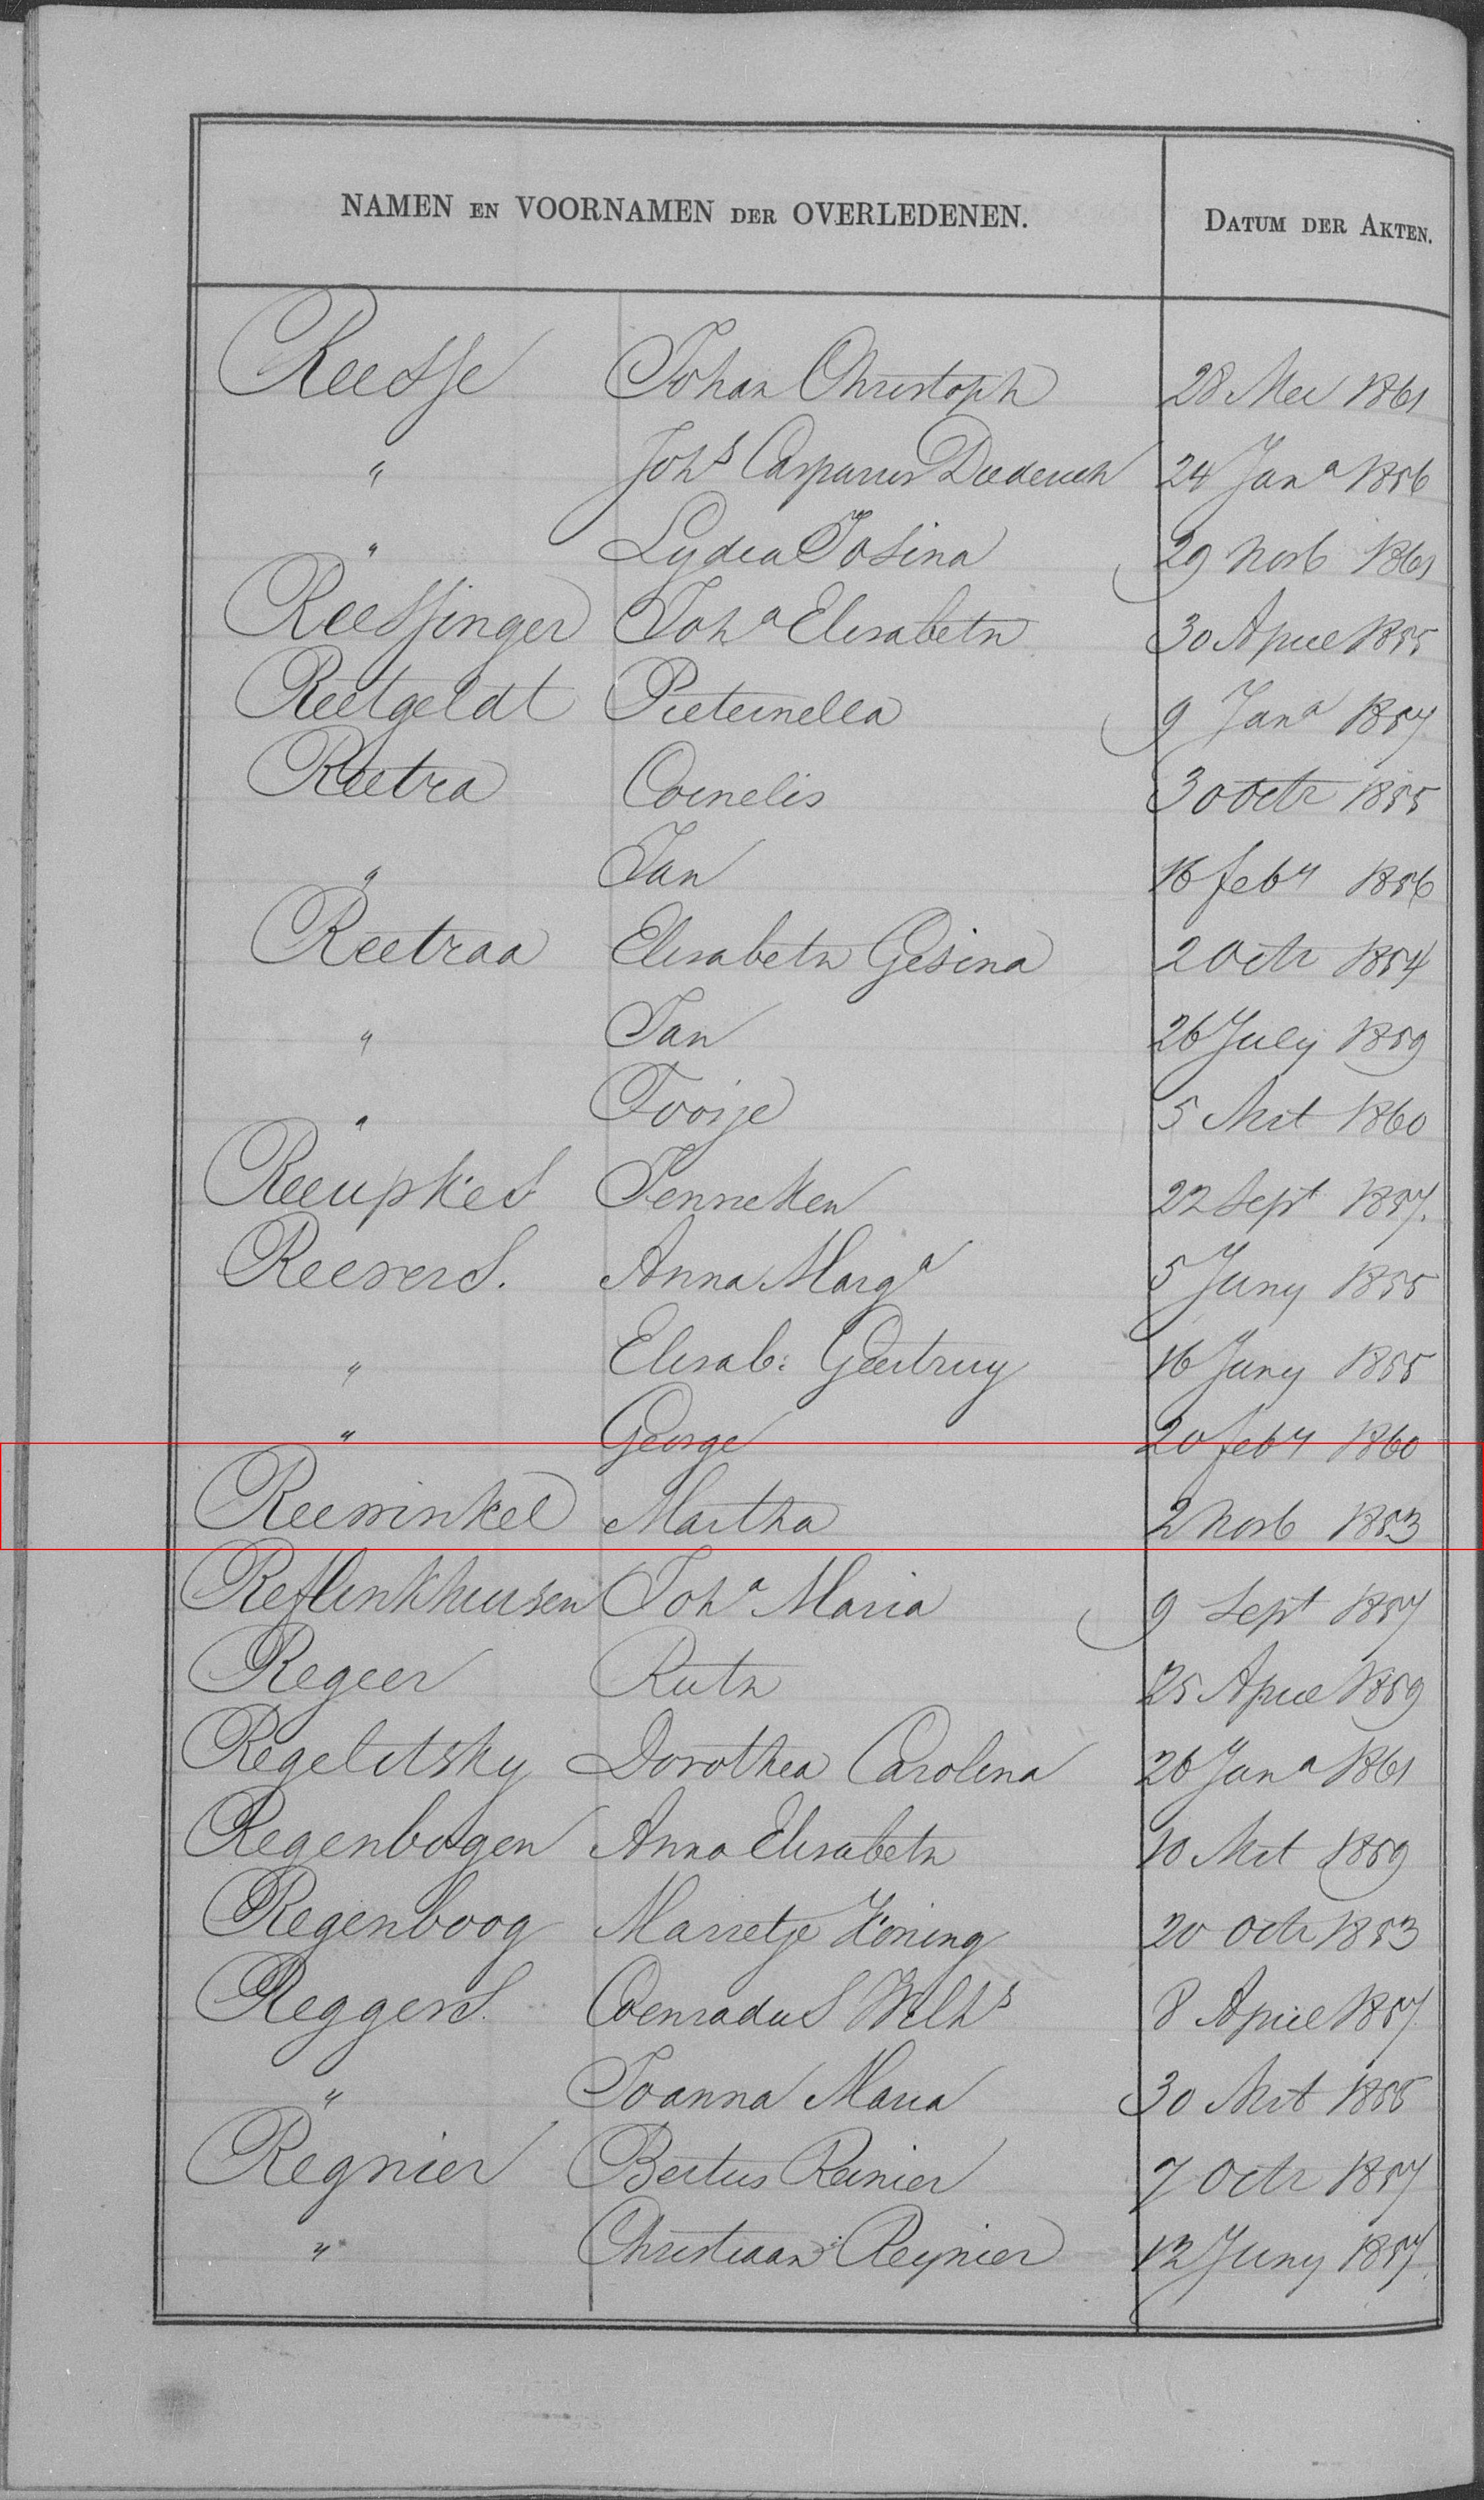 NAMEN EN VOORNAMEN DER OVERLEDENEN. DATUM DER AKTEN.
Reesse Johan Christoph 28 Mei 1861
" Johs Casparus Diederich 24 Jana 1856
" Lydia Josina 29 Novb 1861
Reessinger Joha Elisabeth 30 April 1855
Reetgeldt Pieternella 9 Jana 1857
Reetra Cornelis 30 Octr 1855
" Jan 16 feby 1856
Reetraa Elisabeth Gesina 2 Octr 1854
" Jan 26 July 1859
" Tooije 5 Mrt 1860
Reeupkes Jenneken 22 Sept 1857.
Reevers. Anna Marga 5 Juny 1855
" Elisab: Geertruy 16 Juny 1855
" George 20 feby 1860
Reewinkel Martha 2 Novb 1853
Reflinkhuisen Joha Maria 9 Sept 1857
Regeer Ruth 25 April 1859
Regelitsky Dorothea Carolina 26 Jana 1861
Regenbogen Anna Elisabeth 10 Mrt 1859
Regenboog Marretje Köning 20 Octr 1853
Reggers. Coenradus Wilhs 8 April 1857
" Joanna Maria 30 Mrt 1855
Regnier Bertus Reinier 7 Octr 1857
" Christiaan Reynier 12 Juny 1857.